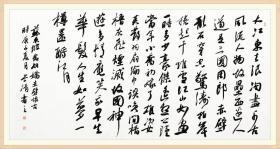 大江東去浪淘盡千古
風流人物故壘西邊人
道是三國周郎赤壁
亂石穿空驚濤拍岸
捲起千堆雪江山如畫一
時多少豪傑遥想公瑾
當年小喬初嫁了雄姿英發
羽扇綸巾談笑間檣
櫓灰飛煙滅故國神
遊多情應笑我早生
華髮人生如夢一
樽還酹江月
蘇東坡念奴嬌赤壁懷古